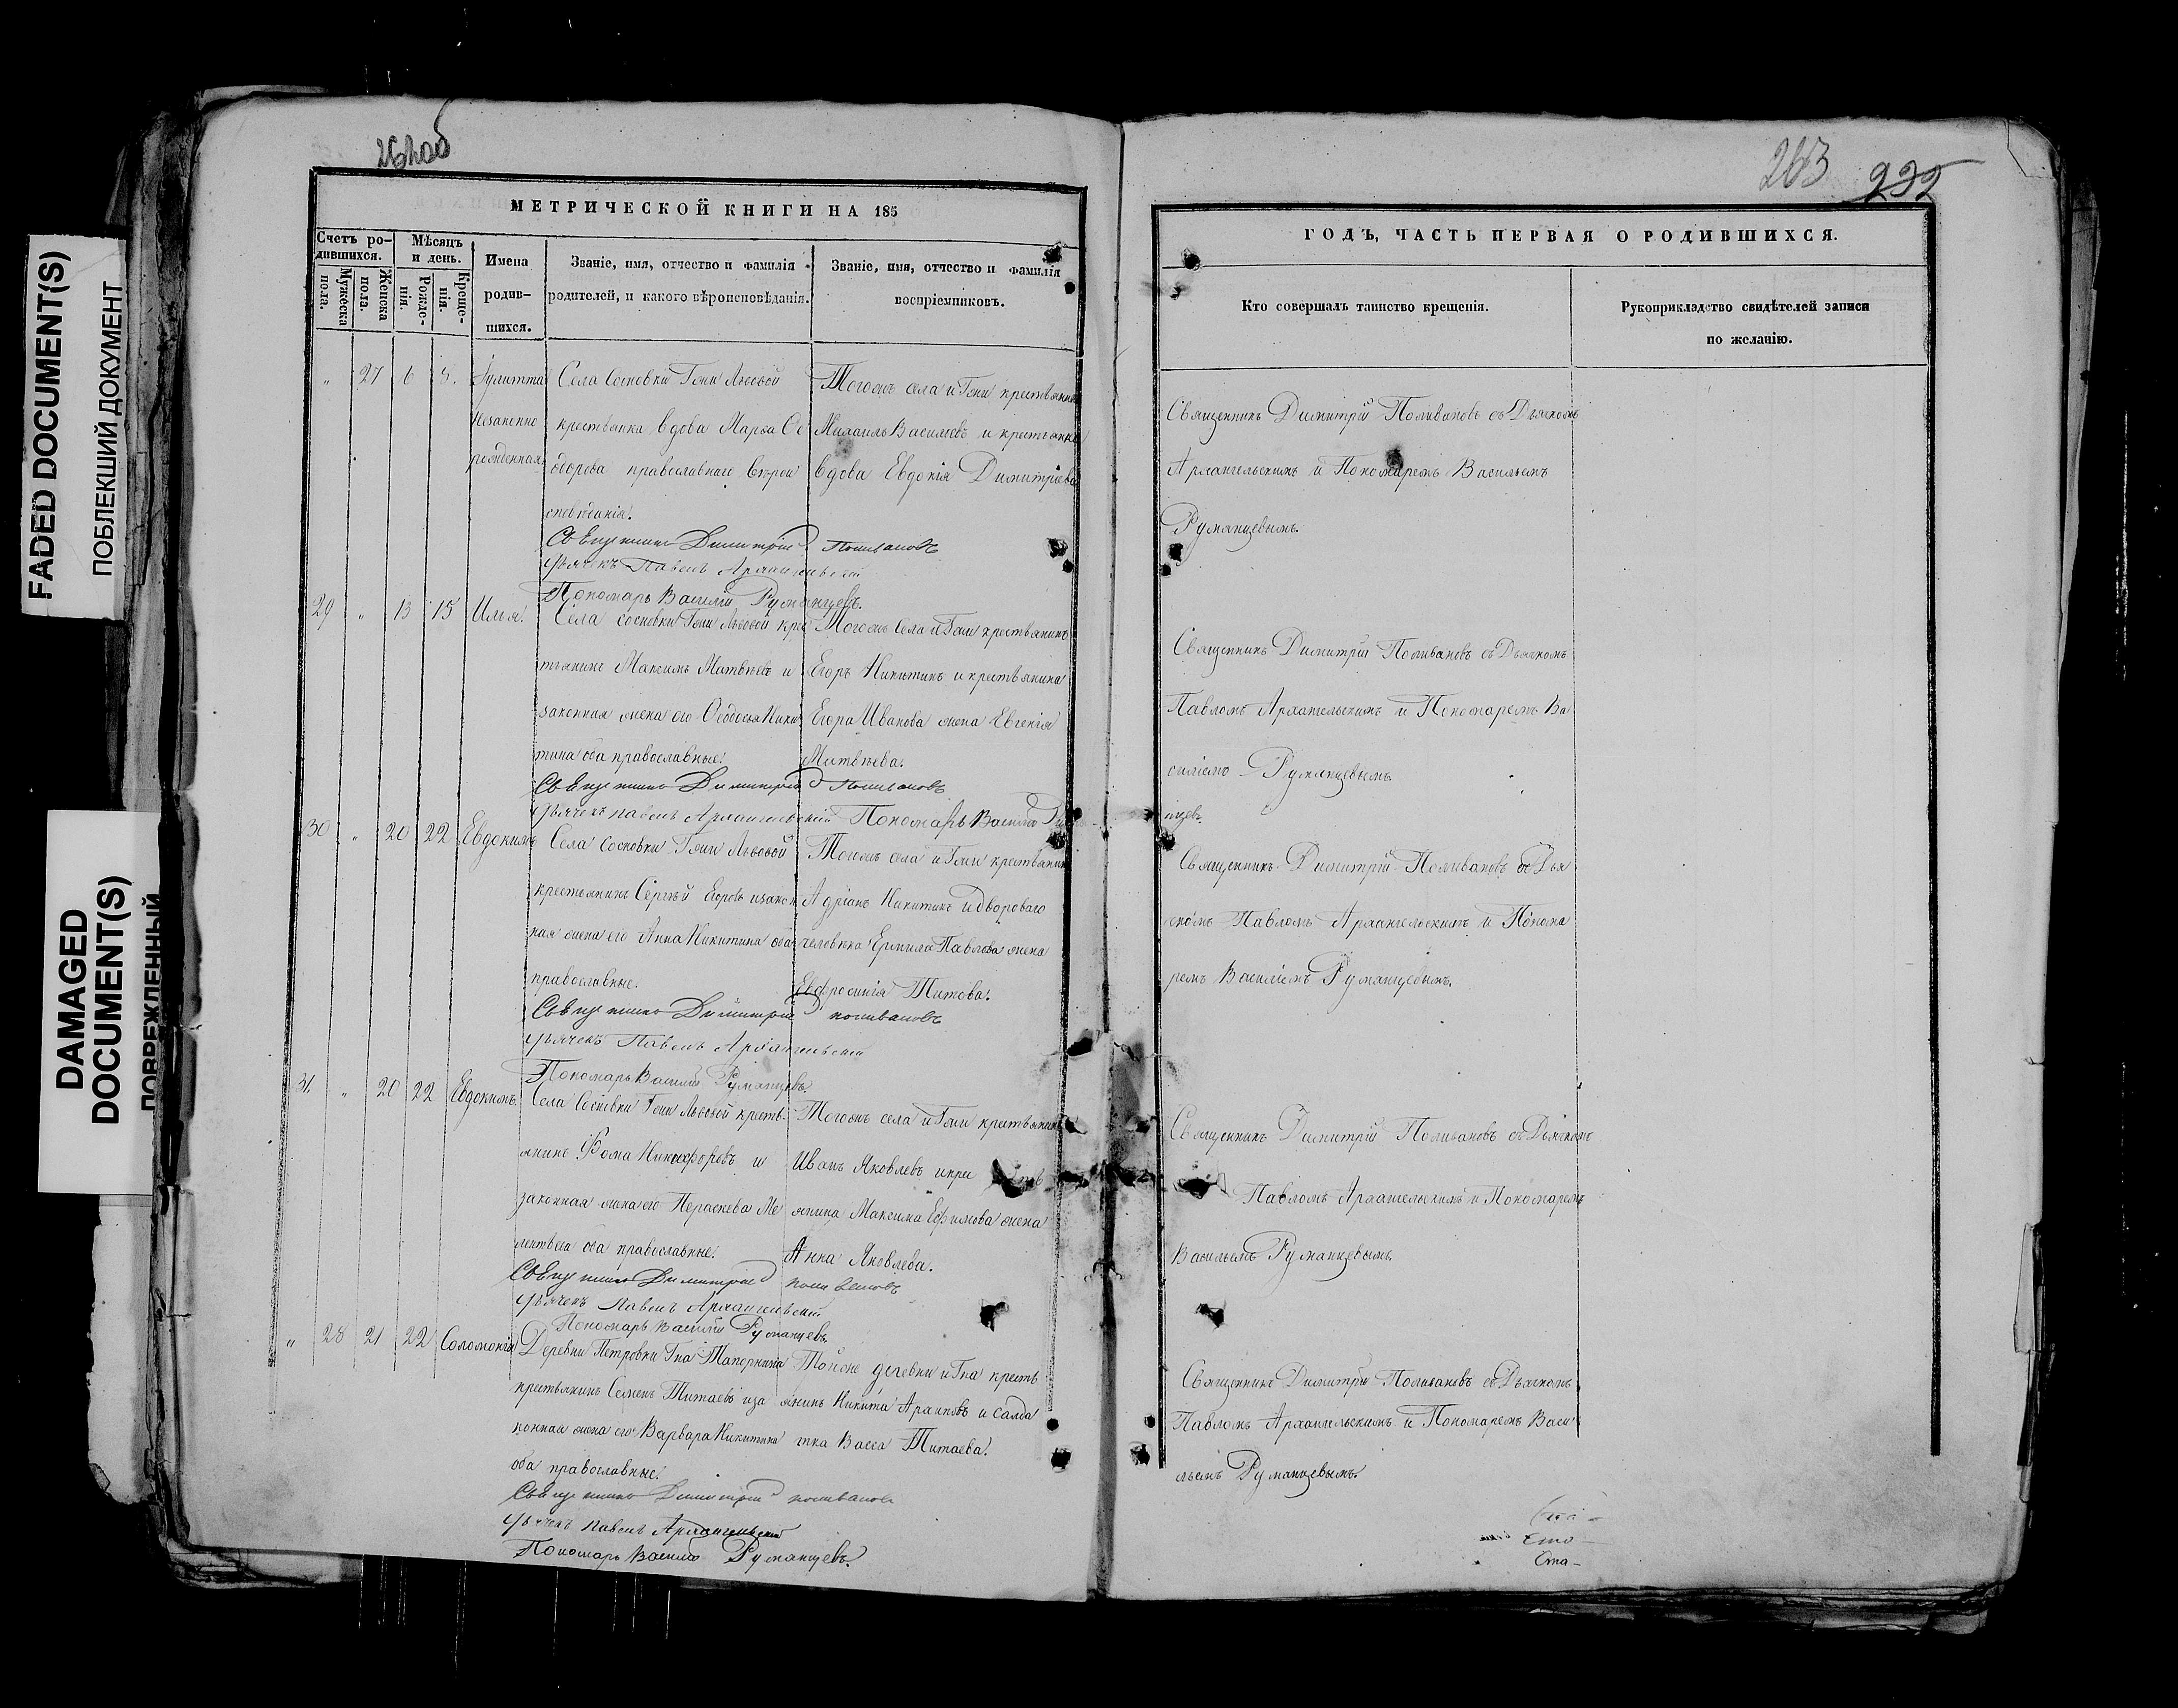 FADED DOCUMENT(S)
ПОБЛЕКШИЙ ДОКУМЕНТ
DAMAGED
DOCUMENT(S)
ПОВРЕЖДЕННЫЙ
МЕТРИЧЕСКОЙ КНИГИ НА 185
Счетъ ро-
дившихся.
Мужеска
пола.
Женска
пола.
Мѣсяцъ
и день.
Рожде-
нія.
Креще-
нія.
Имена
родив-
шихся.
Званіе, имя, отчество и фамилія
родителей, и какого вѣроисповѣданія.
Званіе, имя, отчество и фамилія
воспріемниковъ.
„ 27 6 8. Іулитта
незаконно
рожденная
Села Сосновки Гжи Львовой
крестьянка вдова Марѳа Ѳе
одорова православнаго вѣрои
сповѣданія.
Тогожъ села и Гжи крестьянинъ
Михаилъ Васильевъ и крестьянка
вдова Евдокія Димитріева
Священникъ Димитрій Поливановъ
Дьячекъ Павелъ Архангельскій
Пономарь Василій Румянцевъ.
29 „ 13 15 Илья.
Села Сосновки Гжи Львовой крес
тьянинъ Максимъ Матвѣевъ и
законная жена его Ѳеодосья Ники
тина оба православные.
Тогожъ села и Гжи крестьянинъ
Егоръ Никитинъ и крестьянина
Егора Иванова жена Евгенія
Матвѣева.
Священникъ Димитрій Поливановъ
Дьячекъ Павелъ Архангельскій Пономарь Василій Румя
30 „ 20 22 Евдокимъ
Села Сосновки Гжи Львовой
крестьянинъ Сергѣй Егоровъ и закон
ная жена его Анна Никитина оба
православные.
Тогожъ села и Гжи крестьянинъ
Адріанъ Никитинъ и двороваго
человѣка Ермила Павлова жена
Евфросинія Титова.
Священникъ Димитрій Поливановъ
Дьячекъ Павелъ Архангельскій
Пономарь Василій Румянцевъ.
31. „ 20 22 Евдокимъ.
Села Сосновки Гжи Львовой кресть
янинъ Фома Никифоровъ и
законная жена его Параскева Ме
лентьева оба православные.
Тогожъ села и Гжи крестьянинъ
Иванъ Яковлевъ и кре
янина Максима Ефимова жена
Анна Яковлева.
Священникъ Димитрій Поливановъ
Дьячекъ Павелъ Архангельскій
Пономарь Василій Румянцевъ
„ 28 21 22 Соломонія
Деревни Петровки Гна Тапорнина
крестьянинъ Семенъ Титаевъ и за
конная жена его Варвара Никитина
оба православные.
Тойже деревни и Гна кресть
янинъ Никита Архиповъ и салда
тка Васса Титаева.
Священникъ Димитрій Поливановъ
Дьячекъ Павелъ Архангельскій
Пономарь Василій Румянцевъ.
263 232
ГОДЪ, ЧАСТЬ ПЕРВАЯ О РОДИВШИХСЯ.
Кто совершалъ таинство крещенія.
Рукоприкладство свидѣтелей записи
по желанію.
Священникъ Димитрій Поливановъ съ Дьячкомъ
Архангельскимъ и Пономаремъ Васильемъ
Румянцевымъ.
Священникъ Димитрій Поливановъ съ Дьячкомъ
Павломъ Архангельскимъ и Пономаремъ Ва
силіемъ Румянцевымъ.
нцевъ.
Священникъ Димитрій Поливановъ съ Дья
чкомъ Павломъ Архангельскимъ и Понома
ремъ Василіемъ Румянцевымъ.
Священникъ Димитрій Поливановъ съ Дьячкомъ
Павломъ Архангельскимъ и Пономаремъ
Васильемъ Румянцевымъ.
Священникъ Димитрій Поливановъ съ Дьячкомъ
Павломъ Архангельскимъ и Пономаремъ Васи
льемъ Румянцевымъ.